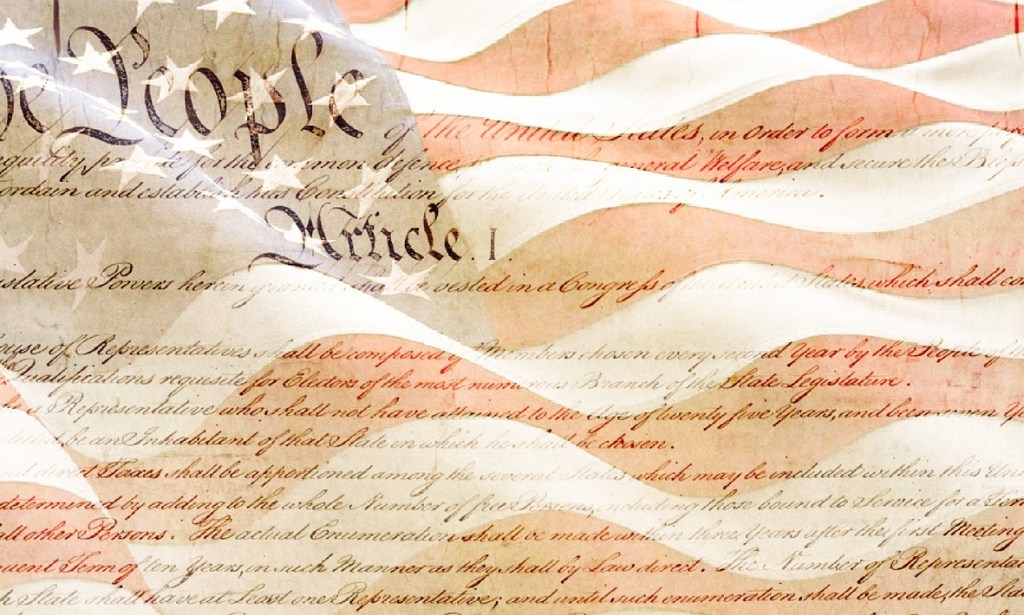 he People of the United States, in Order to form
for the common defence, general Welfare, and secure the
ordain and establish this Constitution for the United States of America.
Article. I.
islative Powers herein granted shall be vested in a Congress of the United States, which shall con
ouse of Representatives shall be composed of Members chosen every second Year by the People of
Qualifications requisite for Electors of the most numerous Branch of the State Legislature.
a Representative who shall not have attained to the Age of twenty five Years, and been seven Ye
be an Inhabitant of that State in which he shall be chosen.
direct Taxes shall be apportioned among the several States which may be included within this Uni
determined by adding to the whole Number of free Persons, including those bound to Service for a Term
all other Persons. The actual Enumeration shall be made within three Years after the first Meeting
quent Term of ten Years, in such Manner as they shall by Law direct. The Number of Representat
h State shall have at Least one Representative; and until such enumeration shall be made, the Sta